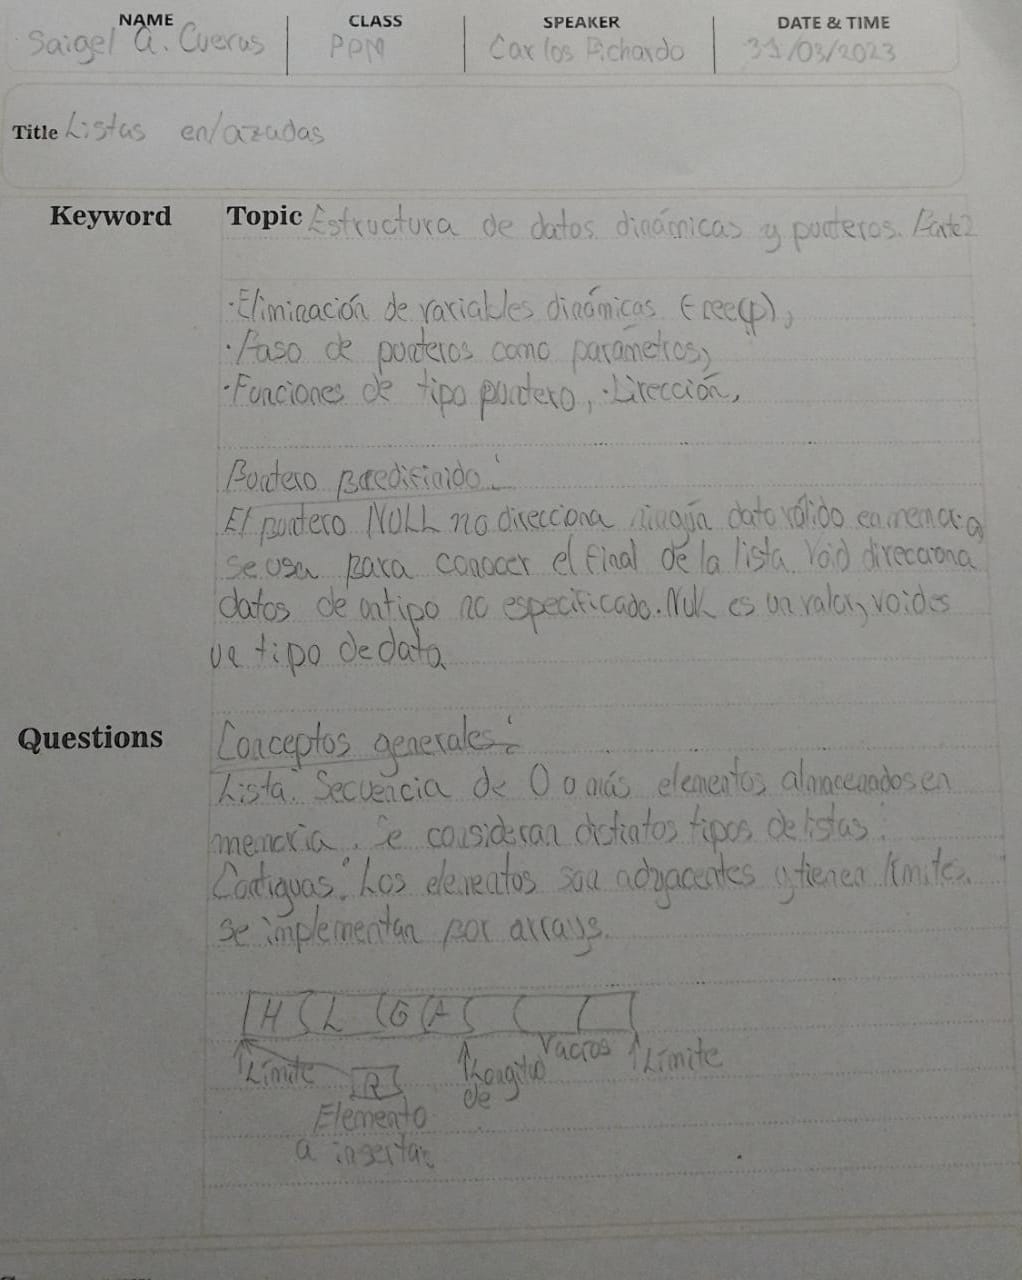 NAME CLASS SPEAKER DATE & TIME
Saigel A. Cuevas PPM Carlos Pichardo 31/03/2023
Title Listas enlazadas
Keyword Topic Estructura de datos dinámicas y punteros. Parte 2
·Eliminación de variables dinámicas Free(p),
·Paso de punteros como parámetros,
·Funciones de tipo puntero, ·Dirección,
Puntero predifinido:
El puntero NULL no direcciona ningún dato válido en memoria,
se usa para conocer el final de la lista. Void direcciona
datos de un tipo no especificado. Null es un valor, void es
un tipo de data
Questions Conceptos generales:
Lista: Secuencia de 0 o más elementos almacenados en
memoria. Se consideran distintos tipos de listas:
Contiguas: Los elementos son adyacentes y tienen límites.
se implementan por arrays.
H L G A
Límite R Longitud de Vacíos Límite
Elemento
a insertar